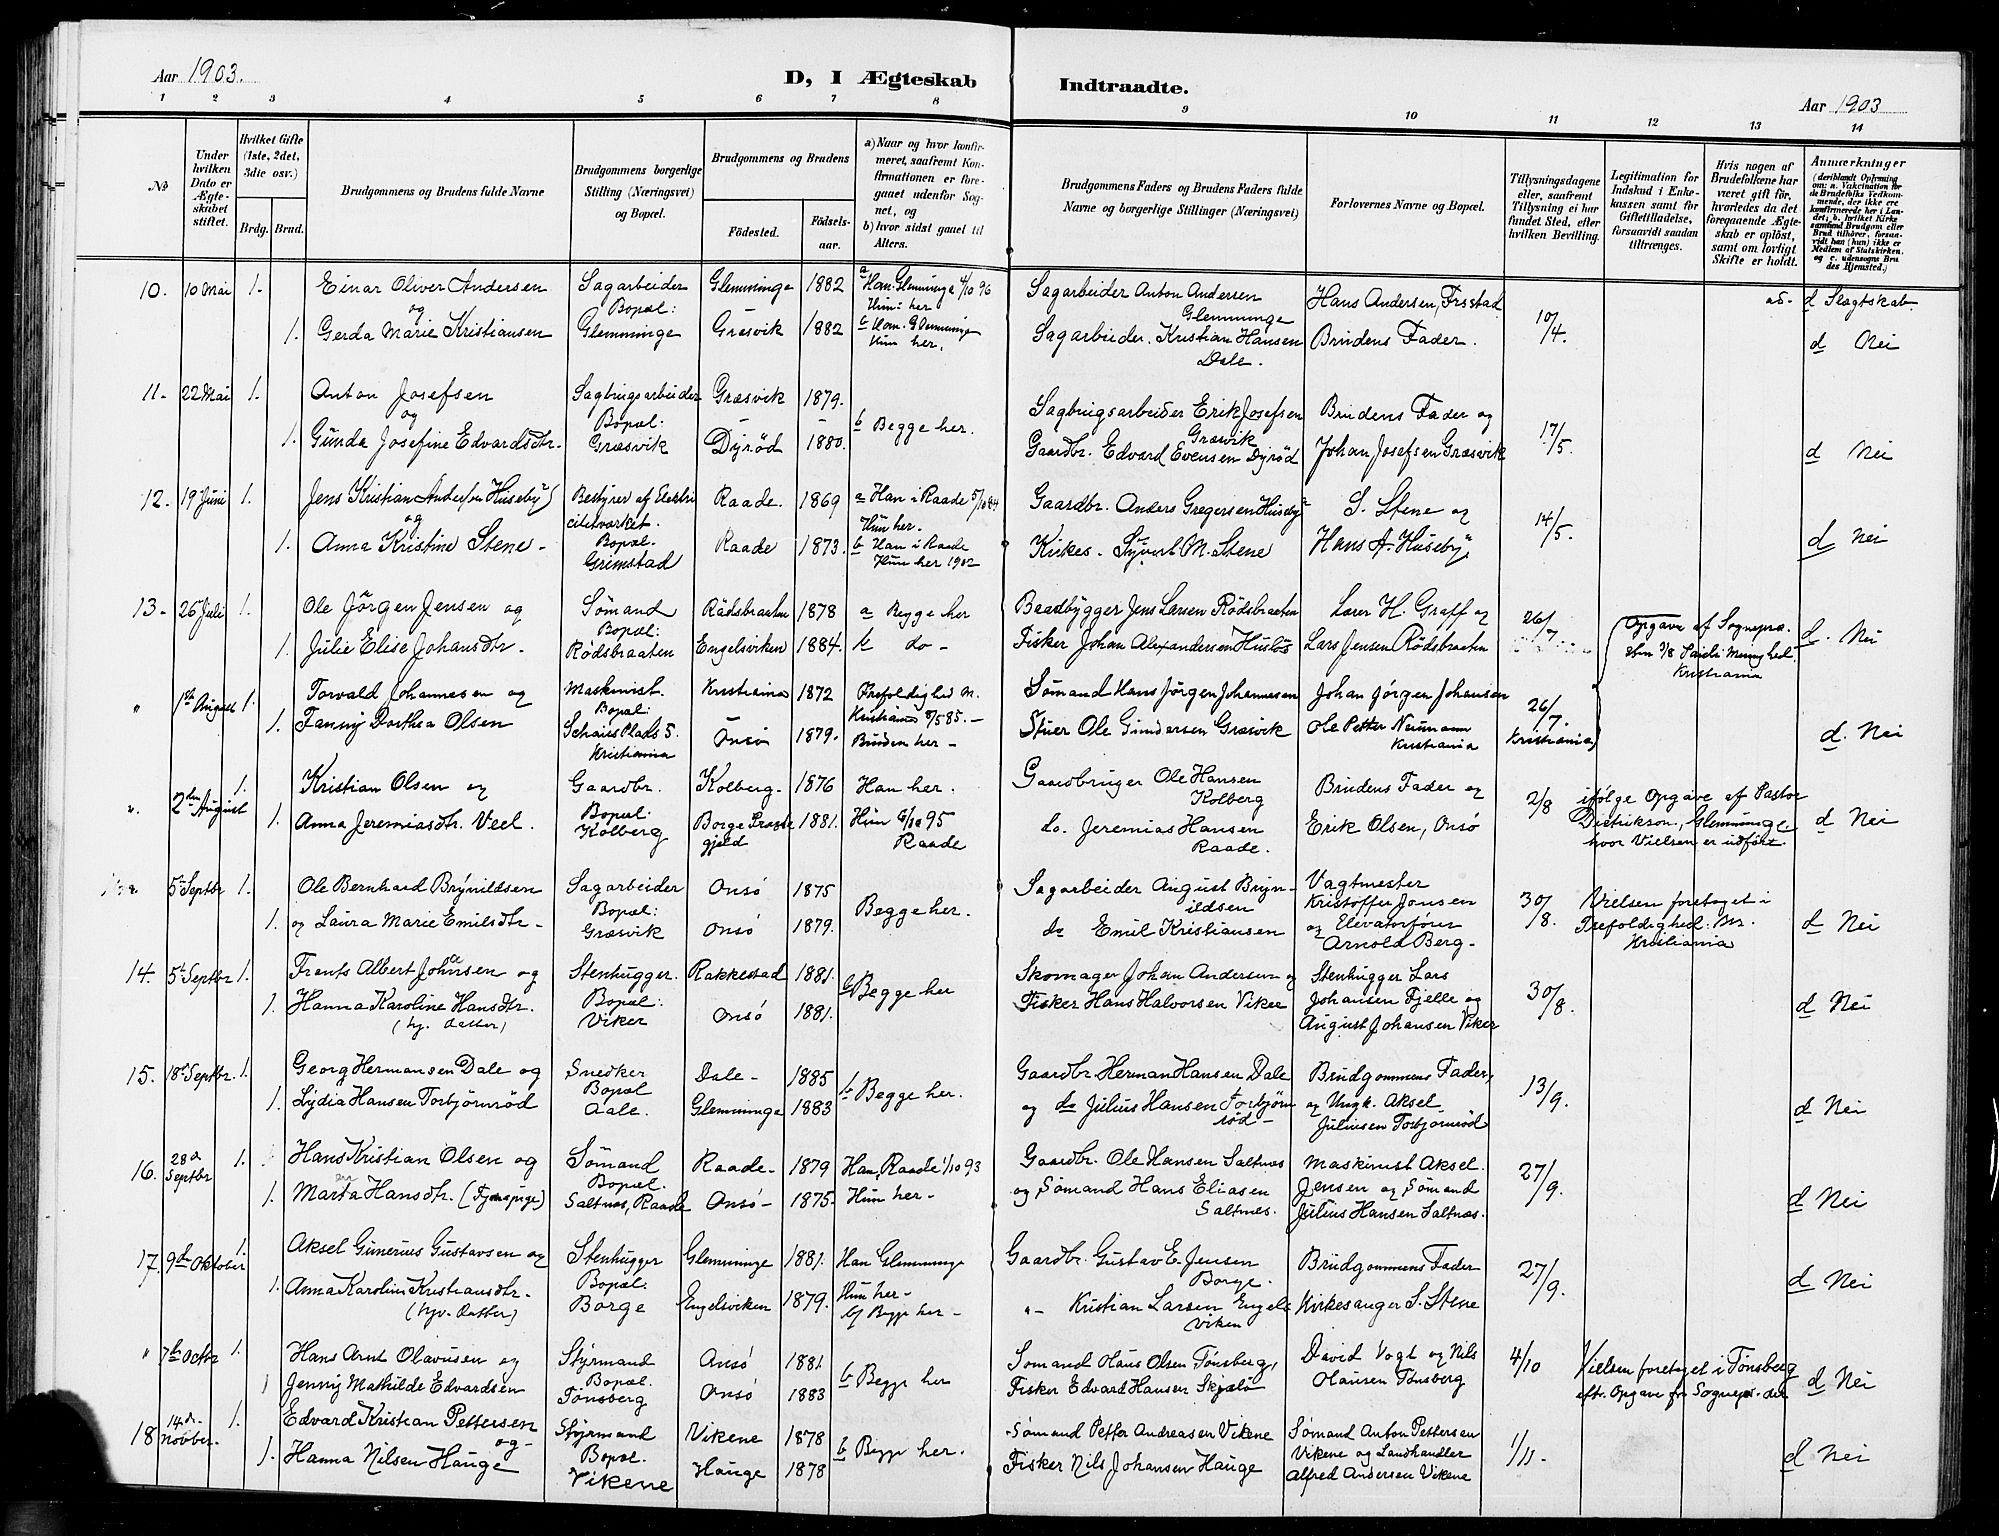 Aar 1903.
D, I Ægteskab Indtraadte.
Aar 1903
1 2 3 4 5 6 7 8 9 10 11 12 13 14
No
Under hvilken Dato er Ægteskabet stiftet.
Hvilket Gifte (1ste, 2det, 3die osv.)
Brdg. Brud.
Brudgommens og Brudens fulde Navne
Brudgommens borgerlige Stilling (Næringsvei) og Bopæl.
Brudgommens og Brudens
Födested.
Födselsaar.
a) Naar og hvor konfirmeret, saafremt Konfirmationen er foregaaet udenfor Sognet, og
b) hvor sidst gaaet til Alters.
Brudgommens Faders og Brudens Faders fulde Navne og borgerlige Stillinger (Næringsvei)
Forlovernes Navne og Bopæl.
Tillysningsdagene eller, saafremt Tillysning ei har fundet Sted, efter hvilken Bevilling.
Legitimation for Indskud i Enkekassen samt for Giftetilladelse, forsaavidt saadan tiltrænges.
Hvis nogen af Brudefolkene har været gift för, hvorledes da det foregaaende Ægteskab er oplöst, samt om lovligt Skifte er holdt.
Anmærkninger
(deriblandt Oplysning om: a. Vakcination for de Brudefolks Vedkommende, der ikke ere konfirmerede her i Landet; b. hvilket Kirke samfund Brudgom eller Brud tilhörer, forsaavidt han (hun) ikke er Medlem af Statskirken, og c. udensogns Brudes Hjemsted.)
10. 10 Mai 1. Einar Oliver Andersen Sagarbeider Glemminge 1882 a Han: Glemminge 4/10 96 Sagarbeider Anton Andersen Hans Andersen, Frstad 10/4. d Slægtskab.
og Bopæl: Hun: her Glemminge
1. Gerda Marie Kristiansen Glemminge Græsvik 1882 b Han. Glemminge Sagarbeider. Kristian Hansen Brudens Fader. d Nei
Hun her. Dale.
11. 22 Mai 1. Anton Josefsen Sagbrugsarbeider Græsvik 1879. Sagbrugsarbeider Erik Josefsen Brudens Fader og 17/5.
og Bopæl: b Begge her. Græsvik
1. Gunda Josefine Edvardsdtr. Græsvik Dyröd 1880. Gaardbr. Edvard Evensen Dyröd Johan Josefsen Græsvik d Nei
12. 19 Juni 1. Jens Kristian Andersen Huseby Bestyrer af Elektri Raade. 1869 a Han i Raade 5/10 84 Gaardbr. Anders Gregersen Huseby S. Stene og 14/5.
og citetværket. Hun her.
1. Anna Kristine Stene. Bopæl. Raade 1873. b Han i Raade Kirkes. Syvert M. Stene Hans A. Huseby d Nei
Grimstad Hun her 1902
13. 26 Juli 1. Ole Jörgen Jensen og Sömand Rödsbraaten 1878 a Begge her Baadbygger Jens Larsen Rödsbraaten Lærer H. Graff og 26/7 Opgave af Sognepræ.
Bopæl:
1. Julie Elise Johansdtr. Rödsbraaten Engelsviken 1884. b do Fisker Johan Alexandersen Lars Jensen Rödsbraaten Menighed. d. Nei
Kristiania
" 1ste August 1. Torvald Johannesen og Maskinist. Kristiania 1872 Trefoldighed M. Sömand Hans Jörgen Johannesen Johan Jörgen Johansen 26/7.
Bopæl: Kristiania
1. Fanny Dorthea Olsen Schous Plads 5. Onsö 1879. Bruden her Stuer Ole Gundersen Græsvik Ole Petter Neumann Kristiania d. Nei
Kristiania Kristiania
" 2den August 1. Kristian Olsen og Gaardbr. Kolberg 1876 Han her. Gaardbruger Ole Hansen Brudens Fader og 2/8 ifölge Opgave af Pastor
Bopæl: Kolberg
1. Anna Jeremiasdtr. Veel. Kolberg Borge Præste 1881. Hun 95 do. Jeremias Hansen Erik Olsen, Onsö Diedrikson, Glemminge d Nei
gjeld Raade Raade. hvor Vielsen er udfört.
5te Septbr 1. Ole Bernhard Brynildsen Sagarbeider Onsö 1875 Sagarbeider August Bryn- Vagtmester 30/8. Vielsen foretaget i
Bopæl: Begge her. ildsen Kristoffer Jonsen Trefoldighed: M.
1. og Laura Marie Emilsdtr. Græsvik Onsö 1879. do Emil Kristiansen og Elevatorförer Kristiania d Nei
Arnold Berg.
14. 5te Septbr 1. Frants Albert Johansen og Stenhugger. Rakkestad 1881. b Begge her Skomager Johan Andersen og Stenhugger Lars 30/8.
1. Hanna Karoline Hansdtr. Bopæl: Onsö 1881. Fisker Hans Halvorsen Viker Johansen Fjelle og d Nei
(hj. datter) Viker August Johansen Viker
15. 18de Septbr. 1. Georg Hermansen Dale og Snedker Dale 1885 b Begge her. Gaardbr. Herman Hansen Dale Brudgommens Fader, 13/9.
Bopæl
1. Lydia Hansen Torbjörnröd Aale. Glemminge 1883 og do Julius Hansen Torbjörn og Ungk. Aksel d Nei
röd Juliusen Torbjörnröd
16. 28de Septbr 1. Hans Kristian Olsen og Sömand Raade 1879 Han, Raade 1/10 93 Gaardbr. Ole Hansen Saltnæs Maskinist Aksel. 27/9.
Bopæl.
1. Marta Hansdtr. (Tjenepige) Saltnæs, Raade Onsö 1875. Hun her og Sömand Hans Eliasen Jensen og Sömand d Nei
Saltnæs. Julius Hansen Saltnæs.
17. 9de Oktober 1. Aksel Gunerius Gustavsen og Stenhugger Glemminge 1881. Han Glemminge Gaardbr. Gustav E. Jensen Brudgommens Fader 27/9.
Bopæl: Hun her Borge.
1. Anna Karoline Kristiansdtr. Borge Engelsviken 1879. b/ Begge her " Kristian Larsen Engels Kirkesanger S. Stene d Nei
(hjv. datter) viken
" 7de Octbr 1. Hans Arnt Olavusen og Styrmand Onsö 1881 b Begge her Sömand Olaus Olsen Tönsberg, David Vogt og Nils 4/10 Vielsen foretaget i Tönsberg
Bopæl.
1 Jenny Mathilde Edvardsen Tönsberg Onsö 1883 Fisker Edvard Hansen Skjælö Olausen Tönsberg eft. Opgave fr Sognepr. der d Nei
18 14de Novber. 1. Edvard Kristian Pettersen Styrmand Vikene 1878 Sömand Petter Andreasen Vikene Sömand Anton Pettersen 1/11
og Bopæl. b Begge her. Vikene og Landhandler
1. Hanna Nilsen Hauge Vikene Hauge 1878 Fisker Nils Johansen Hauge Alfred Andersen Vikene d Nei